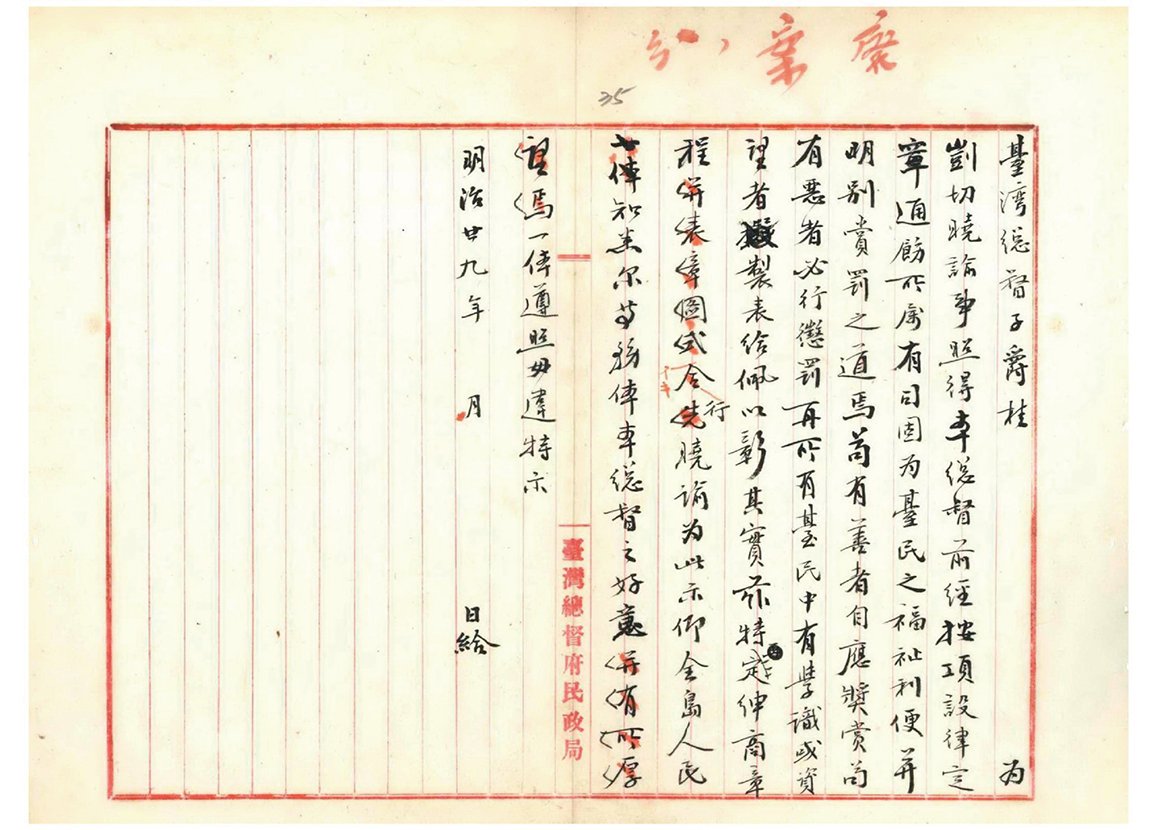 廃案
35
臺湾総督子爵桂　為
剴切曉諭事照得本総督前經按項設律定
章通飭所属有司固為臺民之福祉利便并
明別賞罰之道焉苟有善者自應奬賞苟
有惡者必行懲罰再所有臺民中有學識或資
望者製表給佩以彰其實茲特定紳商章
程併表章圖式合行先曉諭為此示仰全島人民
一体知悉尔等務体本総督之好意併有所厚
望焉一体遵照毋違特示
明治廿九年　月　日給
臺灣總督府民政局